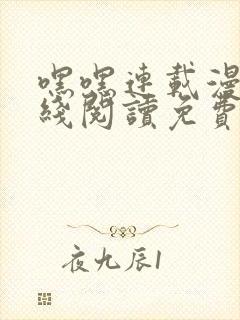 嘿嘿連載漫
綫閱讀免費
夜九辰1